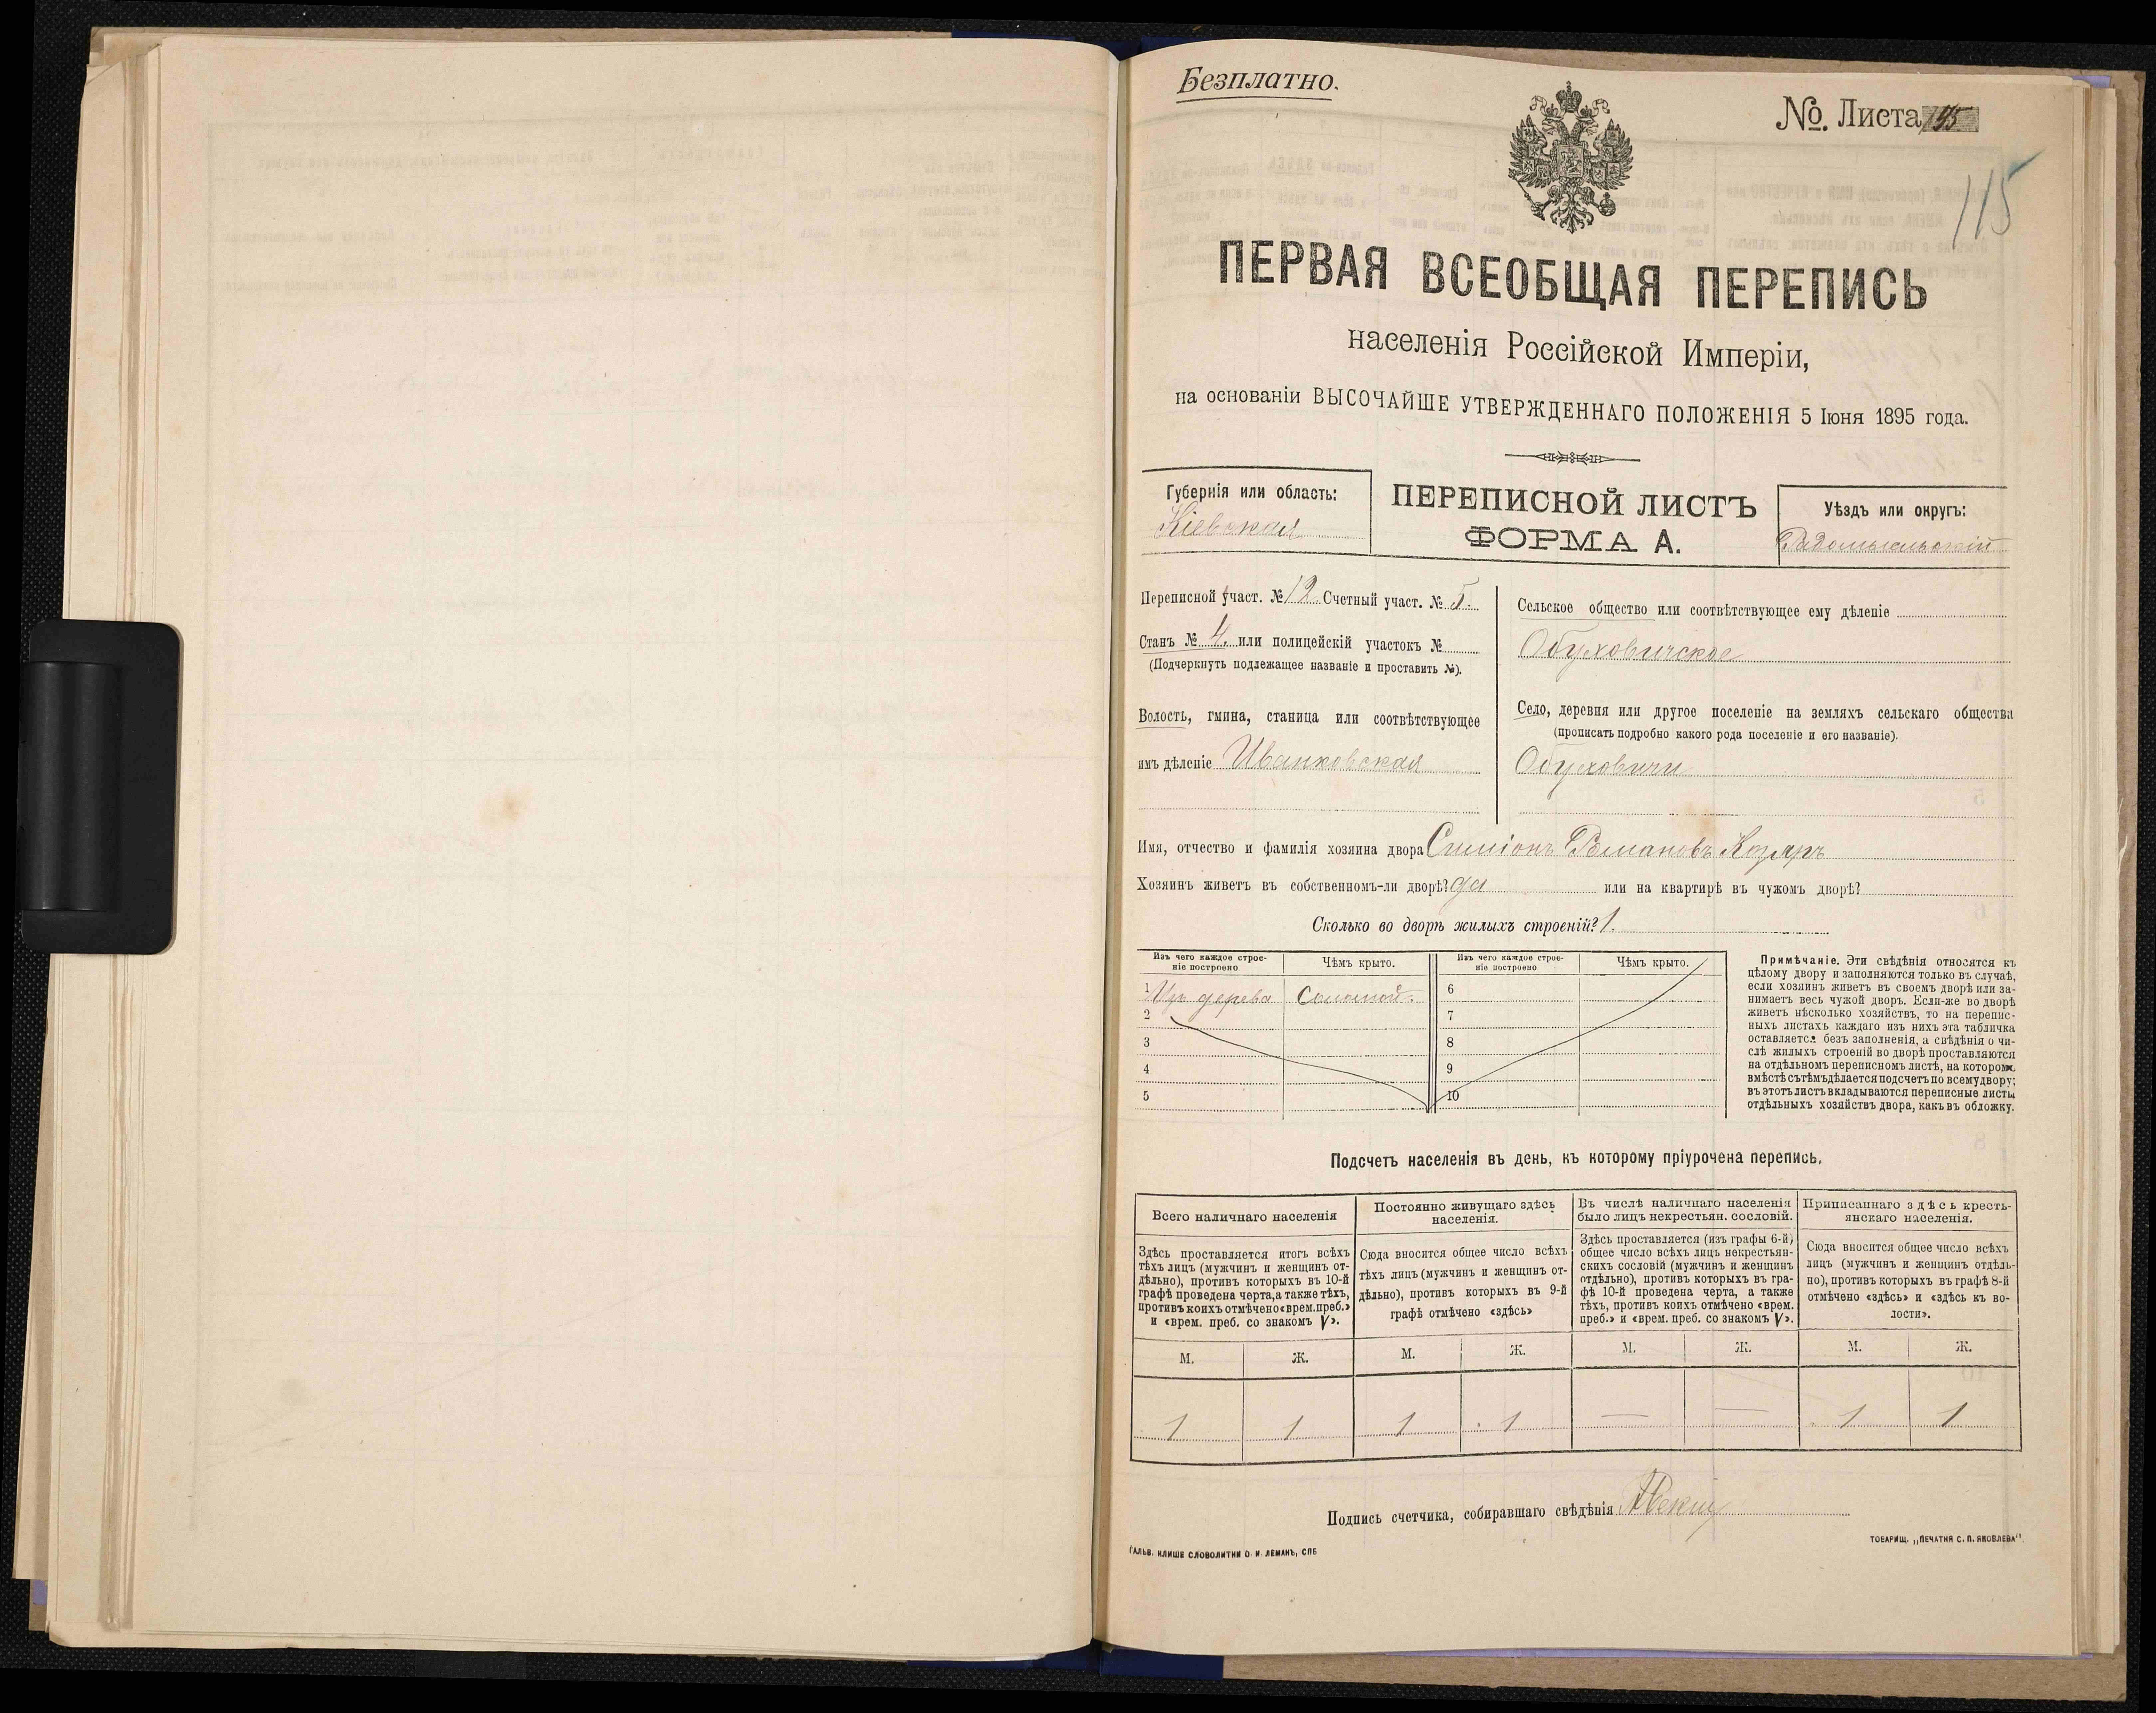 Безплатно.
№. Листа
115
ПЕРВАЯ ВСЕОБЩАЯ ПЕРЕПИСЬ
населенія Россійской Имперіи,
на основаніи ВЫСОЧАЙШЕ УТВЕРЖДЕННАГО ПОЛОЖЕНІЯ 5 Іюня 1895 года.
Губернія или область:
Кіевская
ПЕРЕПИСНОЙ ЛИСТЪ
ФОРМА А.
Уѣздъ или округъ:
Радомысльскій
Переписной участ. № 12 Счетный участ. № 5.
Станъ № 4. или полицейскій участокъ №
(Подчеркнуть подлежащее названіе и проставить №).
Волость, гмина, станица или соотвѣтствующее
имъ дѣленіе Иванковская
Сельское общество или соотвѣтствующее ему дѣленіе
Обуховичское
Село, деревня или другое поселеніе на земляхъ сельскаго общества
(прописать подробно какого рода поселеніе и его названіе).
Обуховичи
Имя, отчество и фамилія хозяина двора Симіонъ Романовъ Козяръ
Хозяинъ живетъ въ собственномъ-ли дворѣ? да или на квартирѣ въ чужомъ дворѣ?
Сколько во дворѣ жилыхъ строеній? 1.
Изъ чего каждое строе-
ніе построено
Чѣмъ крыто.
Изъ чего каждое строе-
ніе построено
Чѣмъ крыто.
1 Изъ дерева Соломой. 6
2 7
3 8
4 9
5 10
Примѣчаніе. Эти свѣдѣнія относятся къ
цѣлому двору и заполняются только въ случаѣ,
если хозяинъ живетъ въ своемъ дворѣ или за-
нимаетъ весь чужой дворъ. Если-же во дворѣ
живетъ нѣсколько хозяйствъ, то на перепис-
ныхъ листахъ каждаго изъ нихъ эта табличка
оставляется безъ заполненія, а свѣдѣнія о чи-
слѣ жилыхъ строеній во дворѣ проставляются
на отдѣльномъ переписномъ листѣ, на которомъ
вмѣстѣ съ тѣмъ дѣлается подсчетъ по всему двору;
въ этотъ листъ вкладываются переписные листы
отдѣльныхъ хозяйствъ двора, какъ въ обложку.
Подсчетъ населенія въ день, къ которому пріурочена перепись.
Всего наличнаго населенія
Здѣсь проставляется итогъ всѣхъ
тѣхъ лицъ (мужчинъ и женщинъ от-
дѣльно), противъ которыхъ въ 10-й
графѣ проведена черта, а также тѣхъ,
противъ коихъ отмѣчено «врем. преб.»
и «врем. преб. со знакомъ V».
Постоянно живущаго здѣсь
населенія.
Сюда вносится общее число всѣхъ
тѣхъ лицъ (мужчинъ и женщинъ от-
дѣльно), противъ которыхъ въ 9-й
графѣ отмѣчено «здѣсь»
Въ числѣ наличнаго населенія
было лицъ некрестьян. сословій.
Здѣсь проставляется (изъ графы 6-й)
общее число всѣхъ лицъ некрестьян-
скихъ сословій (мужчинъ и женщинъ
отдѣльно), противъ которыхъ въ гра-
фѣ 10-й проведена черта, а также
тѣхъ, противъ коихъ отмѣчено «врем.
преб.» и «врем. преб. со знакомъ V».
Приписаннаго здѣсь кресть-
янскаго населенія.
Сюда вносится общее число всѣхъ
лицъ (мужчинъ и женщинъ отдѣль-
но), противъ которыхъ въ графѣ 8-й
отмѣчено «здѣсь» и «здѣсь къ во-
лости».
М. Ж. М. Ж. М. Ж. М. Ж.
1 1 1 1 — — 1 1
Подпись счетчика, собиравшаго свѣдѣнія
ГАЛЬВ. КЛИШЕ СЛОВОЛИТНИ О. И. ЛЕМАНЪ, СПБ
ТОВАРИЩ. „ПЕЧАТНЯ С. П. ЯКОВЛЕВА“